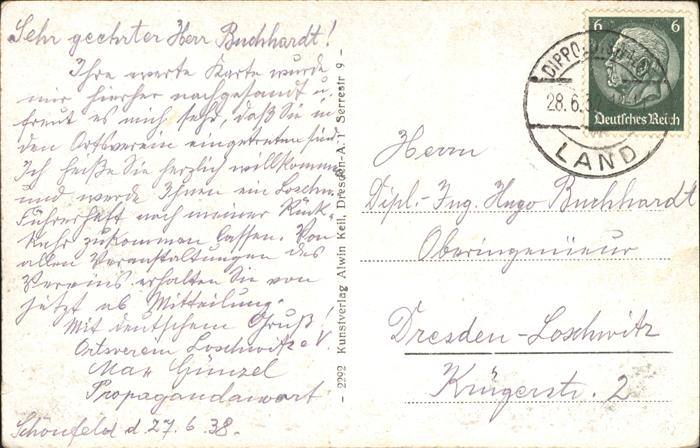 Sehr geehrter Herr Buchhardt!
Ihre werte Karte wurde
mir hierher nachgesandt u.
freut es mich sehr, daß Sie in
den Ortsverein eingetreten sind.
Ich heiße Sie herzlich willkommen
und werde Ihnen ein Loschw.
Führerheft nach meiner Rück-
kehr zukommen lassen. Von
allen Veranstaltungen des
Vereins erhalten Sie von
jetzt ab Mitteilung.
Mit deutschem Gruß!
Ortsverein Loschwitz e.V.
Max Günzel
Propagandawart
Schönfeld d. 27.6.38.
- 2292 Kunstverlag Alwin Keil, Dresden-A. 1 Serrestr 9 -
6 6
Deutsches Reich
28.6.3
LAND
Herrn
Dipl.-Ing. Hugo Buchhardt
Oberingenieur
Dresden-Loschwitz
Krügerstr. 2